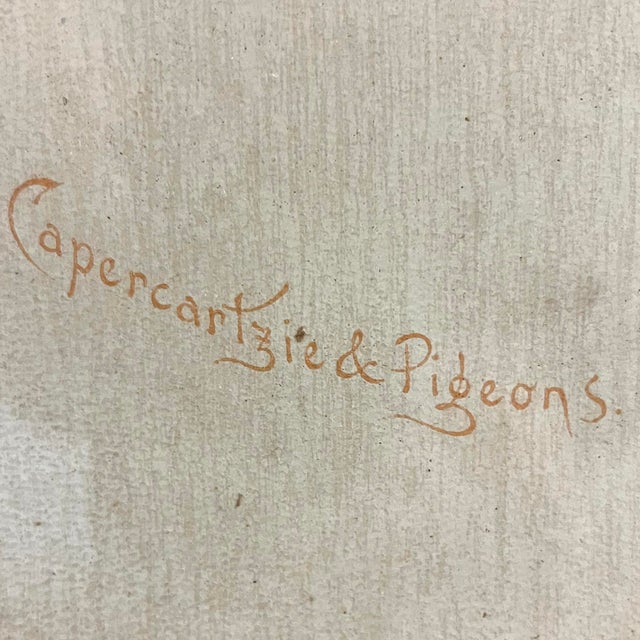 Capercartzie & Pigeons.